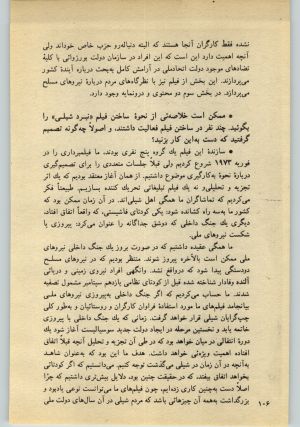 نشده فقط کارگران آنجا هستند که البته دنباله‌رو حزب خاص خودند ولی
آنچه اهمیت دارد این است که این افراد در سازمان دولت بورژوائی با کلیهٔ
تضادهای موجود دولت اتحادملی در آرامش کامل به‌بحث درباره آیندهٔ کشور
می‌پردازند. این بخش از فیلم نیز با نظرگاه‌های مردم دربارهٔ نیروهای مسلح
می‌پردازد. در بخش سوم دو محتوی و درونمایه وجود دارد.
• ممکن است خلاصه‌ئی از نحوهٔ ساختن فیلم «نبرد شیلی» را
بگوئید. چند نفر در ساختن فیلم فعالیت داشتند، و اصولاً چه‌گونه تصمیم
گرفتید که دست به‌این کار بزنید؟
• سازندهٔ این فیلم یك گروه پنج نفری بودند. ما فیلمبرداری را در
فوریه ۱۹۷۳ شروع کردیم ولی قبلاً جلسات متعددی را برای تصمیم‌گیری
دربارهٔ نحوهٔ به‌کارگیری موضوع داشتیم. از همان آغاز معتقد بودیم که یك اثر
تجزیه و تحلیلی‌و نه یك فیلم تبلیغاتی تحریك کننده بسازیم. طبیعتاً فکر
می‌کردیم که تماشاگران ما همگی اهل شیلی‌اند. در آن زمان ممکن بود که
کشور ما به‌سه راه کشانده شود: یکی کودتای فاشیستی، که واقعاً اتفاق افتاد،
دیگری یك جنگ داخلی که دوشق جداگانه را عنوان می‌کرد: پیروزی یا
شکست نیروهای ملی.
ما همگی عقیده داشتیم که در صورت بروز یك جنگ داخلی نیروهای
ملی ممکن است بالاخره پیروز شوند. منتظر بودیم که در نیروهای مسلح
دودستگی پیدا شود که‌درواقع نشد. وانگهی افراد نیروی زمینی و دریائی
آلنده وفادار شناخته شده قبل از کودتای نظامی یازدهم سپتامبر مشمول تصفیه
شدند. ما حساب می‌کردیم که اگر جنگ داخلی به‌پیروزی نیروهای ملی
بیانجامد فیلم‌های ما مورد استفادهٔ فراوان کارگران و روستائیان و به‌طور کلی
چپ‌گرایان شیلی قرار خواهد گرفت. زمانی که یك جنگ داخلی با پیروزی
خاتمه یابد و نخستین مرحله در ایجاد دولت جدید سوسیالیست آغاز شود یك
دورهٔ انتقالی در میان خواهد بود که در آن تجزیه و تحلیل آنچه قبلاً اتفاق
افتاده اهمیت ویژه‌ئی خواهد داشت. هدف ما این بود که به‌عنوان شاهد
به‌آنچه در آن زمان در شیلی می‌گذشت توجه کنیم. می‌دانستیم که اگر کودتائی
بخواهد اتفاق بیفتد، که در حقیقت چنین بود، دلایل بیش‌تری داشتیم که چرا
اصلاً دست به‌چنین کاری زده‌ایم. چون فیلم‌های ما می‌توانست نوعی یادبود و
بزرگداشت به‌همه آن چیزهائی باشد که مردم شیلی در آن سال‌های دولت ملی
۱۰۶